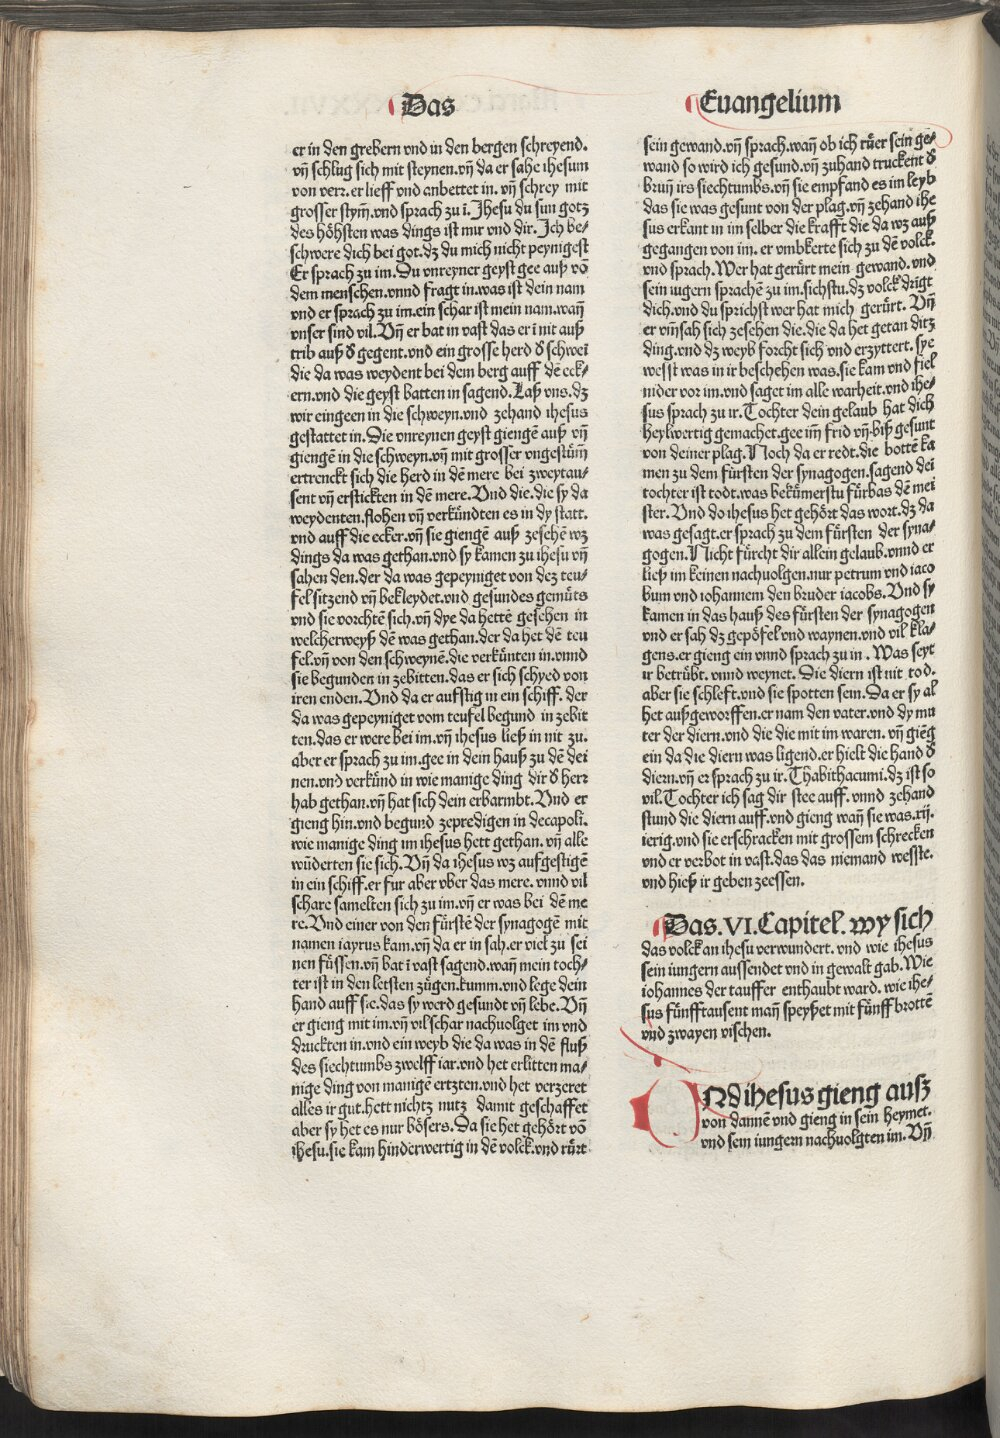 Das
Euangelium
er in den grebern vnd in den bergen schreyend.
vñ schlug sich mit steynen.vñ da er sahe ihesum
von verr.er lieff vnd anbettet in. vñ schrey mit
grosser stym̄.vnd sprach zu ī.Jhesu du sun gotz
des höhsten was dings ist mir vnd dir. Jch be-
schwere dich bei got.dz du mich nicht peynigest
Er sprach zu im.Du vnreyner geyst gee auß võ
dem menschen.vnnd fragt in.was ist dein nam
vnd er sprach zu im.ein schar ist mein nam.wañ
vnser sind vil. Vñ er bat in vast das er ī nit auß
trib auß d̕ gegent.vnd ein grosse herd d̕ schwei
die da was weydent bei dem berg auff dē eck-
ern.vnd die geyst batten in sagend. Laß vns.dz
wir eingeen in die schweyn.vnd zehand ihesus
gestattet in. Die vnreynen geyst giengē auß vñ
giengē in die schweyn.vñ mit grosser vngestům
ertrenckt sich die herd in dē mere bei zweytau-
sent vñ erstickten in dē mere.Vnd die.die sy da
weydenten.flohen vñ verkündten es in dy statt.
vnd auff die ecker.vñ sie giengē auß zesehē wz
dings da was gethan.vnd sy kamen zu ihesu vñ
sahen den.der da was gepeyniget von dez teu-
fel sitzend vñ bekleydet.vnd gesundes gemůts
vnd sie vorchtē sich.vñ dye da hettē gesehen in
welcherweyß dē was gethan.der da het dē teu
fel.vñ von den schweynē.die verkünten in.vnnd
sie begunden in zebitten.das er sich schyed von
iren enden. Vnd da er aufstig in ein schiff. der
da was gepeyniget vom teufel begund in zebit
ten.das er were bei im.vñ ihesus ließ in nit zu.
aber er sprach zu im.gee in dein hauß zu dē dei
nen.vnd verkünd in wie manige ding dir d̕ herr
hab gethan.vñ hat sich dein erbarmbt.Vnd er
gieng hin.vnd begund zepredigen in decapoli.
wie manige ding im ihesus hett gethan. vñ alle
wūderten sie sich.Vñ da ihesus wz aufgestigē
in ein schiff.er fur aber vber das mere. vnnd vil
schare samelten sich zu im.vñ er was bei dē me
re.Vnd einer von den fürstē der synagogē mit
namen iayrus kam.vñ da er in sah.er viel zu sei
nen füssen.vñ bat ī vast sagend.wañ mein toch-
ter ist in den letsten zügen.kumm.vnd lege dein
hand auff sie.das sy werd gesundt vñ lebe. Vñ
er gieng mit im.vñ vil schar nachuolget im vnd
druckten in.vnd ein weyb die da was in dē fluß
des siechtumbs zwelff iar.vnd het erlitten ma-
nige ding von manigē ertzten.vnd het verzeret
alles ir gut.hett nichtz nutz damit geschaffet
aber sy het es nur bösers. Da sie het gehört võ
ihesu.sie kam hinderwertig in dē volck.vnd rürt
sein gewand.vñ sprach.wañ ob ich rüer sein ge-
wand so wird ich gesund.vñ zuhand truckent d̕
bruñ irs siechtumbs.vñ sie empfand es im leyb
das sie was gesunt von der plag.vñ zehand ihe
sus erkant in im selber die krafft die da wz auß
gegangen von im. er vmbkerte sich zu dē volck.
vnd sprach. Wer hat gerürt mein gewand. vnd
sein iugern sprachē zu im.sichstu.dz volck drīgt
dich.vnd du sprichst wer hat mich gerürt. Vñ
er vm̄sah sich zesehen die.die da het getan ditz
ding.vnd dz weyb forcht sich vnd erzyttert. sye
wesst was in ir beschehen was.sie kam vnd fiel
nider vor im.vnd saget im alle warheit.vnd ihe-
sus sprach zu ir. Tochter dein gelaub hat dich
heylwertig gemachet.gee im̄ frid vñ biß gesunt
von deiner plag. Noch da er redt.die bottē ka
men zu dem fürsten der synagogen.sagend dei
tochter ist todt.was bekümerstu fürbas dē mei
ster. Vnd do ihesus het gehört das wort.dz da
was gesagt.er sprach zu dem fürsten der syna-
gogen. Nicht fürcht dir allein gelaub.vnnd er
ließ im keinen nachuolgen.nur petrum vnd iaco
bum vnd iohannem den bruder iacobs. Vnd sy
kamen in das hauß des fürsten der synagogen
vnd er sah dz gepöfel vnd waynen.vnd vil kla-
gens.er gieng ein vnnd sprach zu in. Was seyt
ir betrübt. vnnd weynet. Die diern ist nit tod.
aber sie schleft.vnd sie spotten sein. Da er sy al
het außgeworffen.er nam den vater.vnd dy mu
ter der diern.vnd die die mit im waren. vñ giēg
ein da die diern was ligend.er hielt die hand d̕
diern.vñ er sprach zu ir. Thabithacumi.dz ist so
vil. Tochter ich sag dir stee auff. vnnd zehand
stund die diern auff.vnd gieng wañ sie was.xij.
ierig.vnd sie erschracken mit grossem schrecken
vnd er verbot in vast.das das niemand wesste.
vnd hieß ir geben zeessen.
Das.VI.Capitel. wy sich
das volck an ihesu verwundert. vnd wie ihesus
sein iungern aussendet vnd in gewalt gab. Wie
iohannes der tauffer enthaubt ward. wie ihe-
sus fünfftausent mañ speyßet mit fünff brottē
vnd zwayen vischen.
VNd ihesus gieng ausz
von dannē vnd gieng in sein heymet.
vnd sein iungern nachuolgten im. Vñ